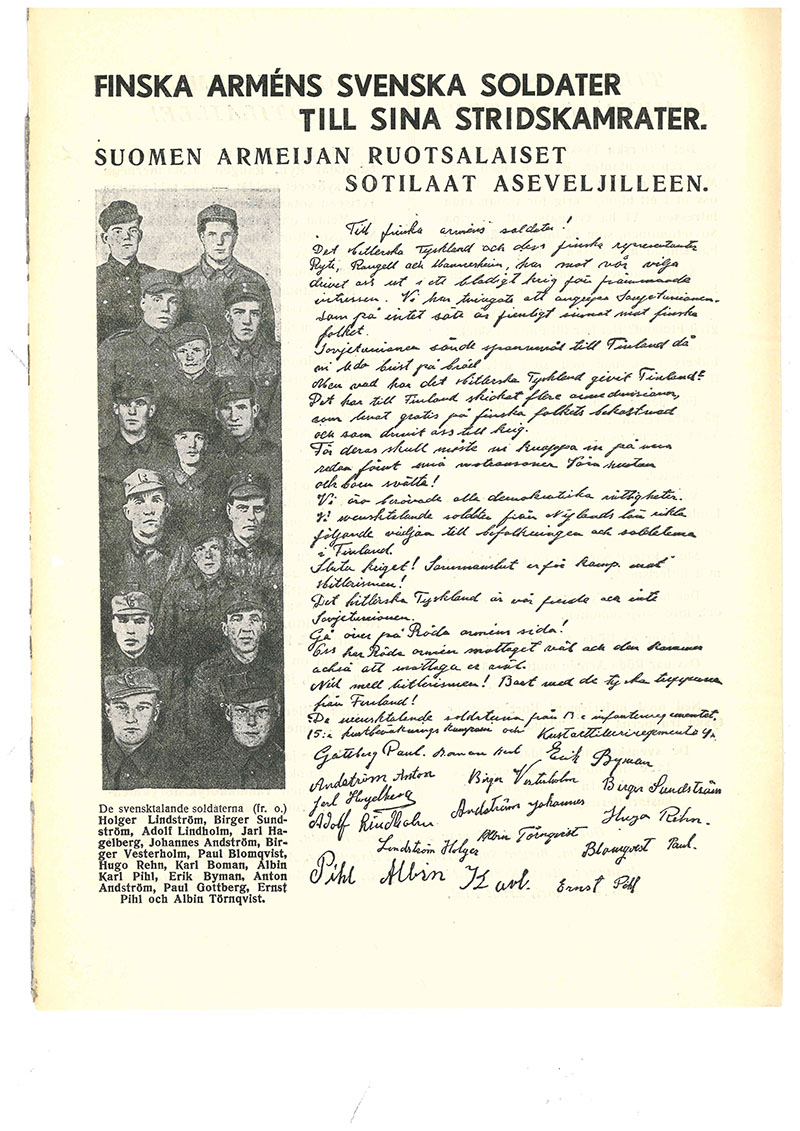 FINSKA ARMÉNS SVENSKA SOLDATER
TILL SINA STRIDSKAMRATER.
SUOMEN ARMEIJAN RUOTSALAISET
SOTILAAT ASEVELJILLEEN.
Till finska arméns soldater!
Det Hitlerska Tyskland och dess finska representanter
Ryti, Rangell och Mannerheim, har mot vår vilja
drivit oss ut i ett blodigt krig för främmande
intressen. Vi har tvingats att angripa Sovjetunionen
som på intet sätt är fientligt sinnat mot finska
folket.
Sovjetunionen sände spannmål till Finland då
vi led brist på bröd
Men vad har det Hitlerska Tyskland givit Finland?
Det har till Finland skickat flere armedivisioner,
som levat gratis på finska folkets bekostnad
och som drivit oss till krig.
För deras skull måste vi knappa in på våra
redan förut små matransoner Våra
och barn svälta!
Vi äro berövade alla demokratiska rättigheter.
Vi svensktalande soldater från Nylands län rikta
följande vädjan till befolkningen och soldaterna
i Finland.
Sluta kriget! Sammanslut er för kamp mot
Hitlerismen!
Det hitlerska Tyskland är vår fiende och inte
Sovjetunionen.
Gå över på Röda arméns sida!
Oss har Röda armén mottaget väl och den kommer
också att mottaga er
Ned med hitlerismen! Bort med de tyska trupperna
från Finland!
De svensktalande soldaterna från 13:e infanteriregementet,
15:e och Kustartilleriregementet
Göteberg Paul. Boman Karl Erik Byman
Andström Anton Birger Vesterholm Birger Sundström
Jarl Hagelberg
Adolf Lindholm Andström Johannes Hugo Rehn.
Lindström Holger Albin Törnqvist Blomqvist Paul.
Pihl Albin Karl. Ernst Pihl
De svensktalande soldaterna (fr. o.)
Holger Lindström, Birger Sund-
ström, Adolf Lindholm, Jarl Ha-
gelberg, Johannes Andström, Bir-
ger Vesterholm, Paul Blomqvist,
Hugo Rehn, Karl Boman, Albin
Karl Pihl, Erik Byman, Anton
Andström, Paul Gottberg, Ernst
Pihl och Albin Törnqvist.